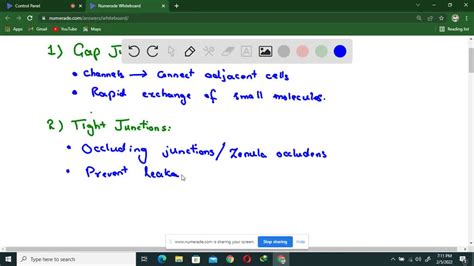 Control Panel
Numerade Whiteboard
numerade.com/answers/whiteboard/
Reading list
1) Gap Ju
• Channels → Connect adjacent cells
• Rapid exchange of small molecules.
2) Tight Junctions:
• Occluding junctions/Zenula occludens
• Prevent leaka
www.numerade.com is sharing your screen.
Stop sharing
Hide
Type here to search
7:11 PM
2/5/2022